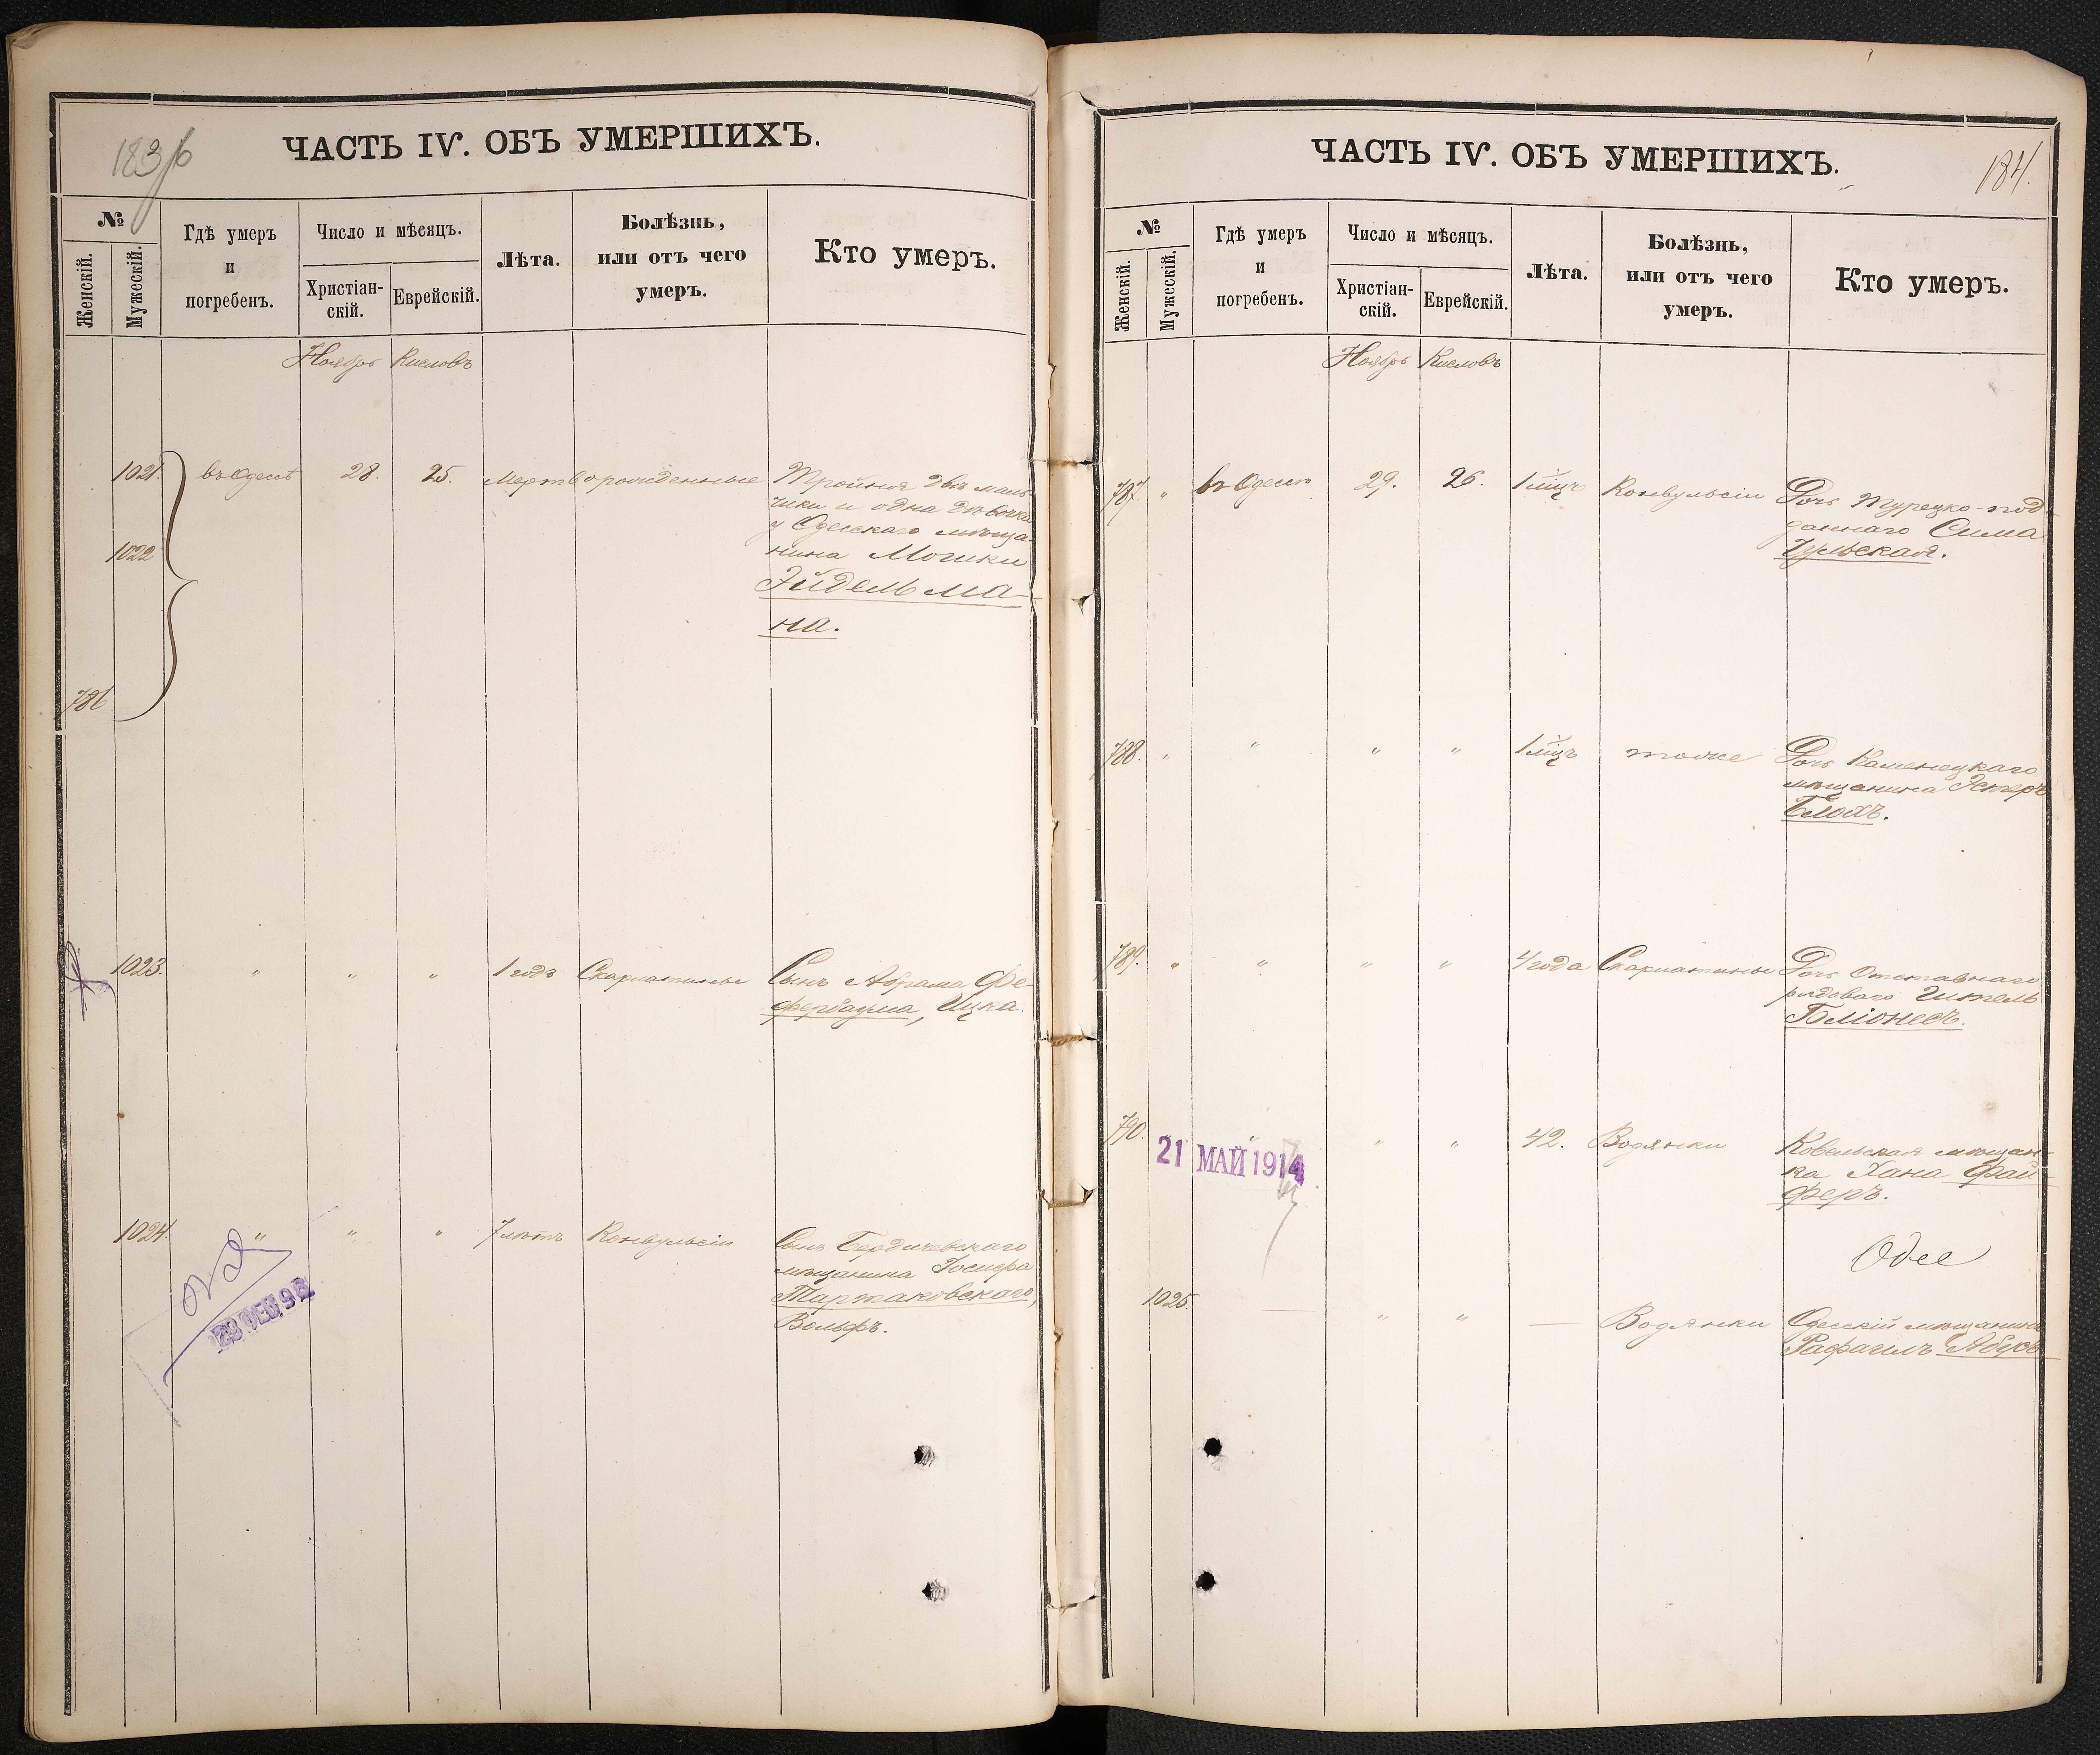 183 об
ЧАСТЬ IV. ОБЪ УМЕРШИХЪ.
№
Женскій.
Мужескій.
Гдѣ умеръ
и
погребенъ.
Число и мѣсяцъ.
Христіан-
скій.
Еврейскій.
Лѣта.
Болѣзнь,
или отъ чего
умеръ.
Кто умеръ.
Ноябрь Кисловъ
1021. въ Одессѣ 28. 25. Мертворожденные Тройня два маль-
чики и одна дѣвочка
у Одесскаго мѣща-
1022 нина Мошки
Эйдельма-
на.
786
1023. " " " 1 годъ Скарлатины Сынъ Абрама Фе-
фербаума, Ицка.
1024. " " " 7 лѣтъ Конвульсіи Сынъ Бердичевскаго
мѣщанина Іосифа
Тартаковскаго,
Вольфъ.
ЧАСТЬ IV. ОБЪ УМЕРШИХЪ.
184.
№
Женскій.
Мужескій.
Гдѣ умеръ
и
погребенъ.
Число и мѣсяцъ.
Христіан-
скій.
Еврейскій.
Лѣта.
Болѣзнь,
или отъ чего
умеръ.
Кто умеръ.
Ноябрь Кисловъ
787. " въ Одессѣ 29. 26. 1 мѣцъ Конвульсіи Дочь Турецко-под-
даннаго Сима
788. " " " " 1 мѣцъ тоже Дочь Каменецкаго
мѣщанина Эстеръ
Блохъ.
789. " " " " 4 года Скарлатины Дочь Отставнаго
рядоваго Гитель
Бліонесъ.
790. " " " " 42. Водянки Ковельская мѣщан-
ка Хана Фай-
21 МАЙ 1914
феръ.
Одес
1025. — " " — Водянки Одесскій мѣщанинъ
Рафаилъ Абусь